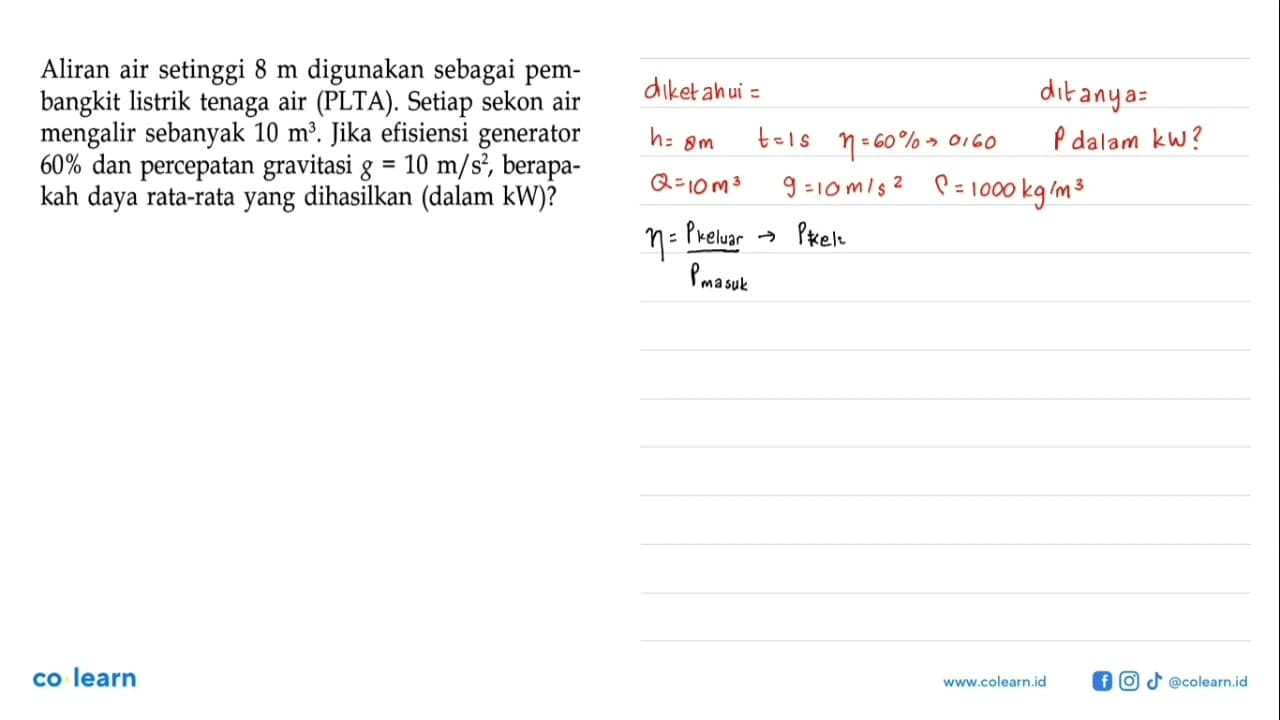 Aliran air setinggi 8 m digunakan sebagai pem-
bangkit listrik tenaga air (PLTA). Setiap sekon air
mengalir sebanyak 10 m³. Jika efisiensi generator
60% dan percepatan gravitasi g = 10 m/s², berapa-
kah daya rata-rata yang dihasilkan (dalam kW)?
diketahui = ditanya=
h= 8m t=1s η=60%→0,60 P dalam kW?
Q=10m³ g=10m/s² ρ=1000kg/m³
η= Pkeluar → Pkel
Pmasuk
co learn
www.colearn.id @colearn.id